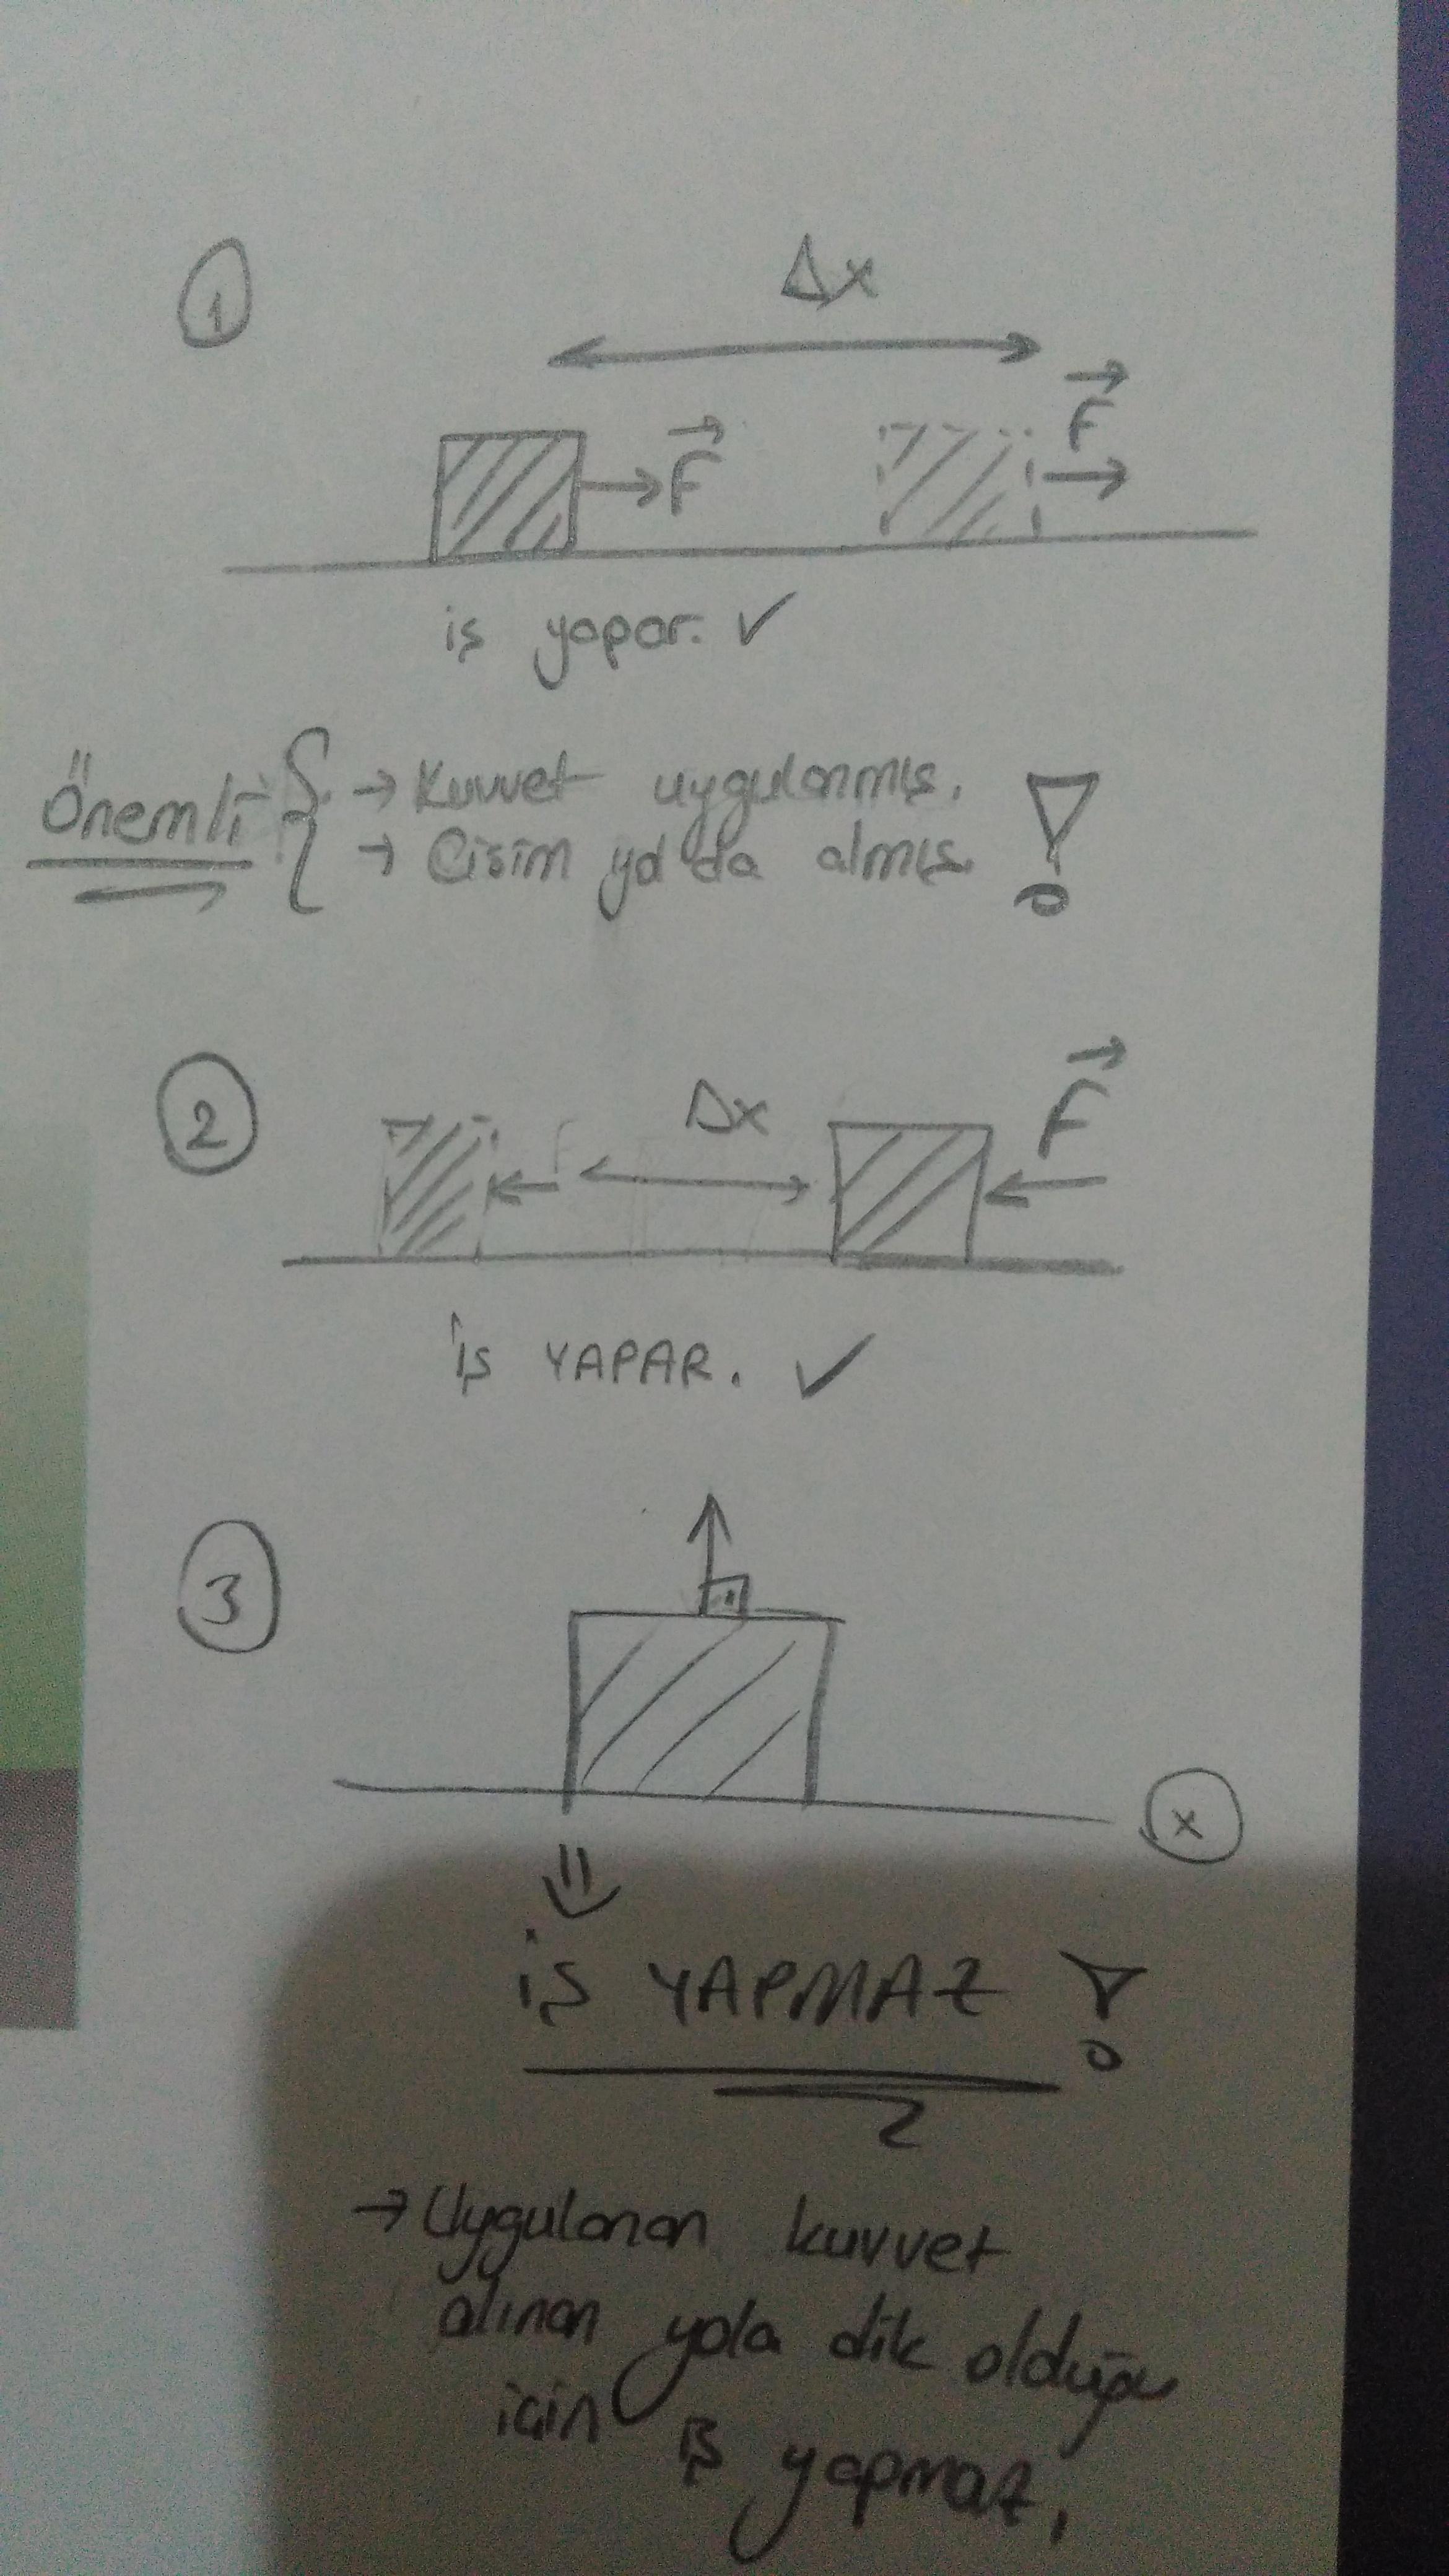 1
Δx
F
F
iş yapar. ✓
Önemli { → Kuvvet uygulanmış. !
→ Cisim yol da almış.
2
Δx
F
F
İş YAPAR. ✓
3
x
İŞ YAPMAZ !
→ Uygulanan kuvvet
alınan yola dik olduğu
için iş yapmaz,